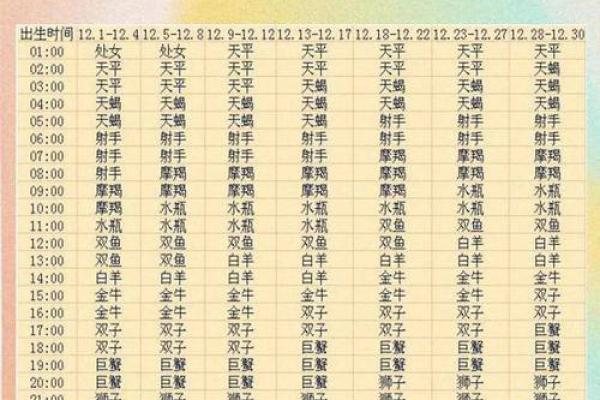 出生时间 12.1-12.4 12.5-12.8 12.9-12.12 12.13-12.17 12.18-12.22 12.23-12.27 12.28-12.30
01:00 处女 处女 天平 天平 天平 天平 天平
02:00 天平 天平 天平 天平 天平 天平 天平
03:00 天平 天平 天平 天蝎 天蝎 天蝎 天蝎
04:00 天蝎 天蝎 天蝎 天蝎 天蝎 天蝎 天蝎
05:00 天蝎 天蝎 天蝎 天蝎 射手 射手 射手
06:00 射手 射手 射手 射手 射手 射手 射手
07:00 射手 射手 射手 射手 摩羯 摩羯 摩羯
08:00 射手 摩羯 摩羯 摩羯 摩羯 摩羯 摩羯
09:00 摩羯 摩羯 摩羯 摩羯 摩羯 水瓶 水瓶
10:00 摩羯 水瓶 水瓶 水瓶 水瓶 水瓶 水瓶
11:00 水瓶 水瓶 水瓶 水瓶 双鱼 双鱼 双鱼
12:00 双鱼 双鱼 双鱼 双鱼 双鱼 白羊 白羊
13:00 双鱼 双鱼 白羊 白羊 白羊 白羊 白羊
14:00 白羊 白羊 白羊 白羊 金牛 金牛 金牛
15:00 金牛 金牛 金牛 金牛 金牛 金牛 双子
16:00 金牛 金牛 金牛 双子 双子 双子 双子
17:00 双子 双子 双子 双子 双子 双子 巨蟹
18:00 双子 双子 双子 巨蟹 巨蟹 巨蟹 巨蟹
19:00 巨蟹 巨蟹 巨蟹 巨蟹 巨蟹 巨蟹 巨蟹
20:00 巨蟹 巨蟹 巨蟹 巨蟹 狮子 狮子 狮子